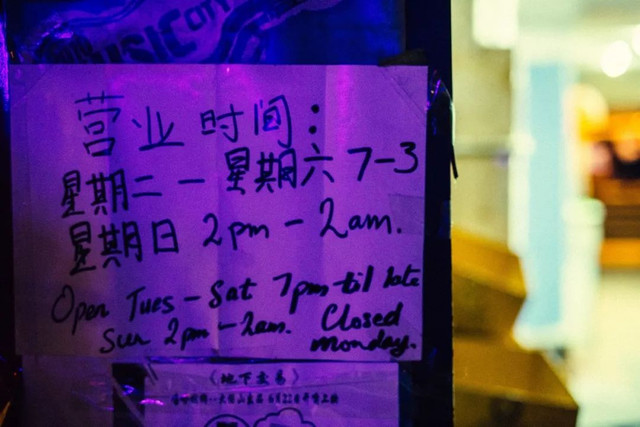 MUSIC CITY
营业时间:
星期二 — 星期六 7-3
星期日 2pm - 2am.
Open Tues - Sat 7pm - til late
Sun 2pm - 2am. Closed
monday.
《地下交易》